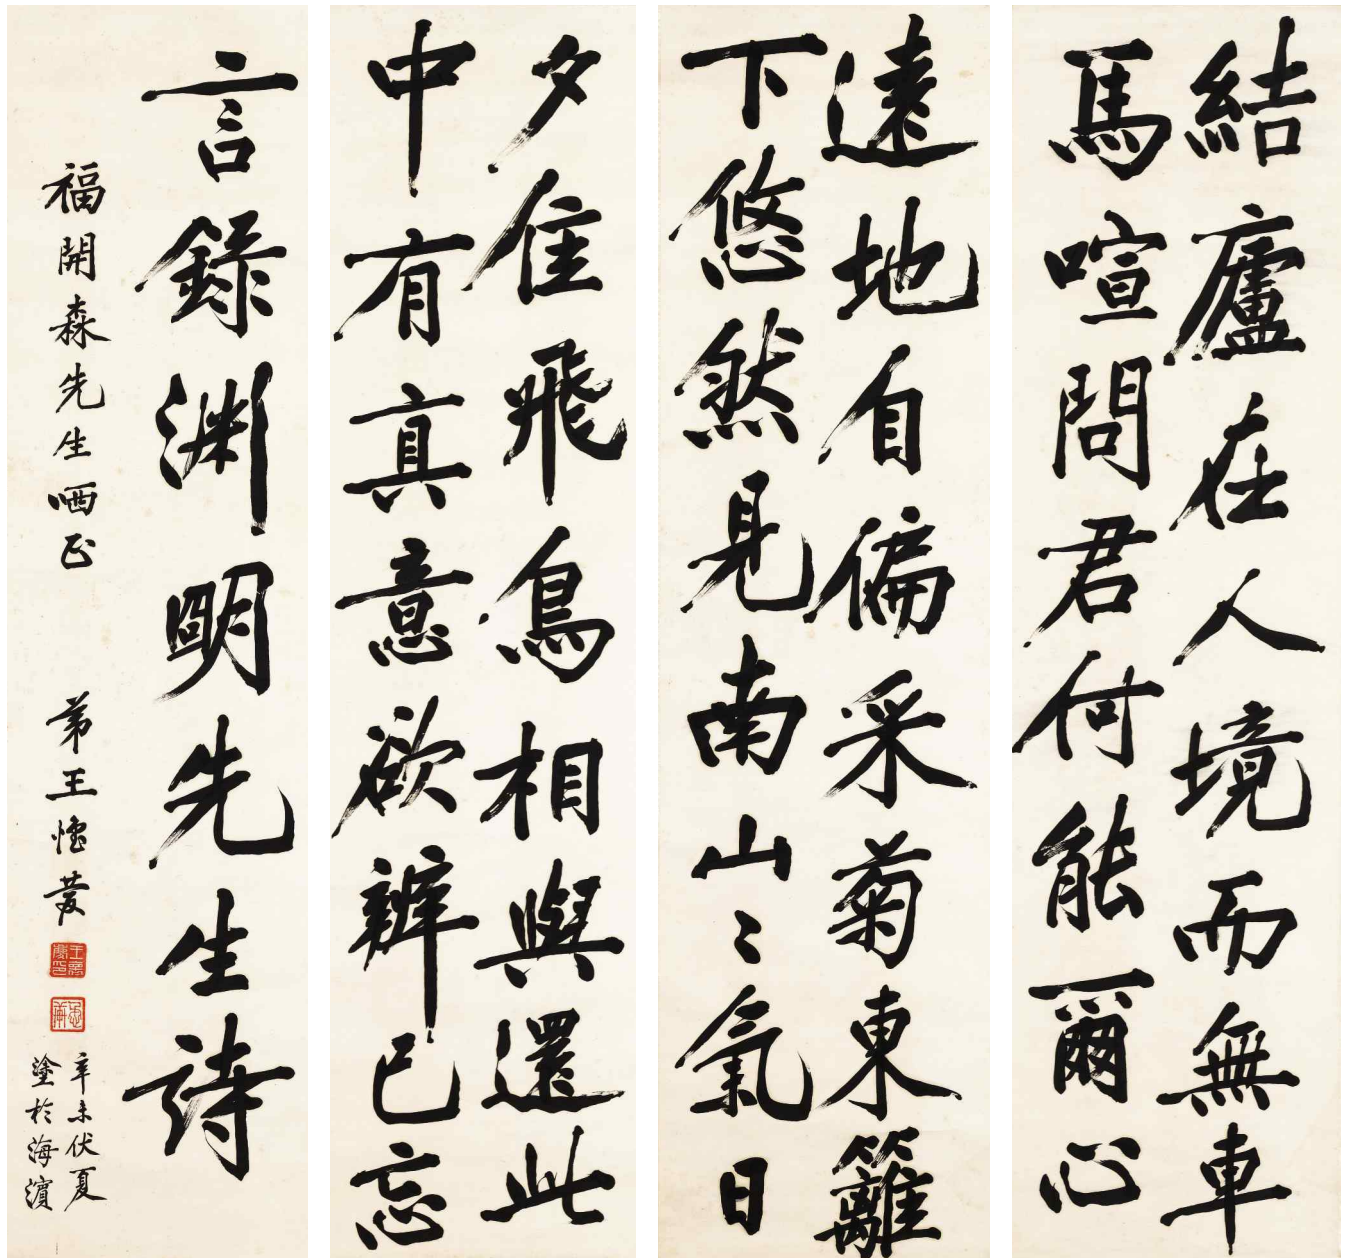 結廬在人境而無車
馬喧問君何能爾心
遠地自偏采菊東籬
下悠然見南山〻氣日
夕佳飛鳥相與還此
中有真意欲辨已忘
言錄淵明先生詩
福開森先生哂正 弟王懷慶
王懷慶印
辛未伏夏
塗於海濱